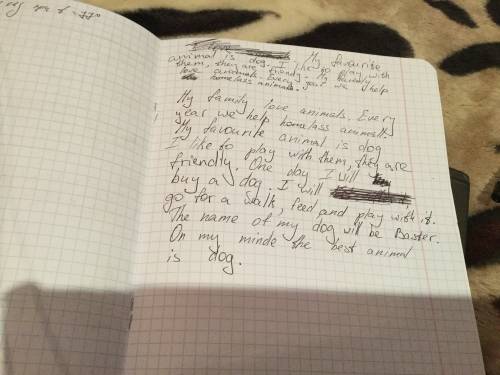 My favourite
animal is dog. I like to play with
them, they are friendly. My family
love animals. Every year we help
homeless animals.
My family love animals. Every
year we help homelass animals.
My favourite animal is dog
I like to play with them, they are
friendly. One day I will
buy a dog. I will
go for a walk, feed and play with it.
The name of my dog will be Baster.
On my minde the best animal
is dog.